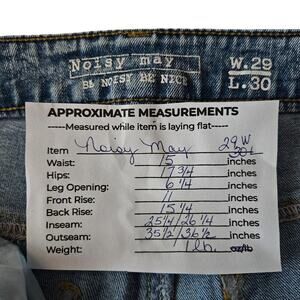 Noisy may
BE NOISY BE NICE
W.29
L.30
APPROXIMATE MEASUREMENTS
-----Measured while item is laying flat-----
Item Noisy May 29W
Waist: 15 inches
Hips: 17 3/4 inches
Leg Opening: 6 1/4 inches
Front Rise: 11 inches
Back Rise: 15 1/4 inches
Inseam: 25 1/4 / 26 1/4 inches
Outseam: 35 1/2 / 36 1/2 inches
Weight: 1 lb. oz/lb